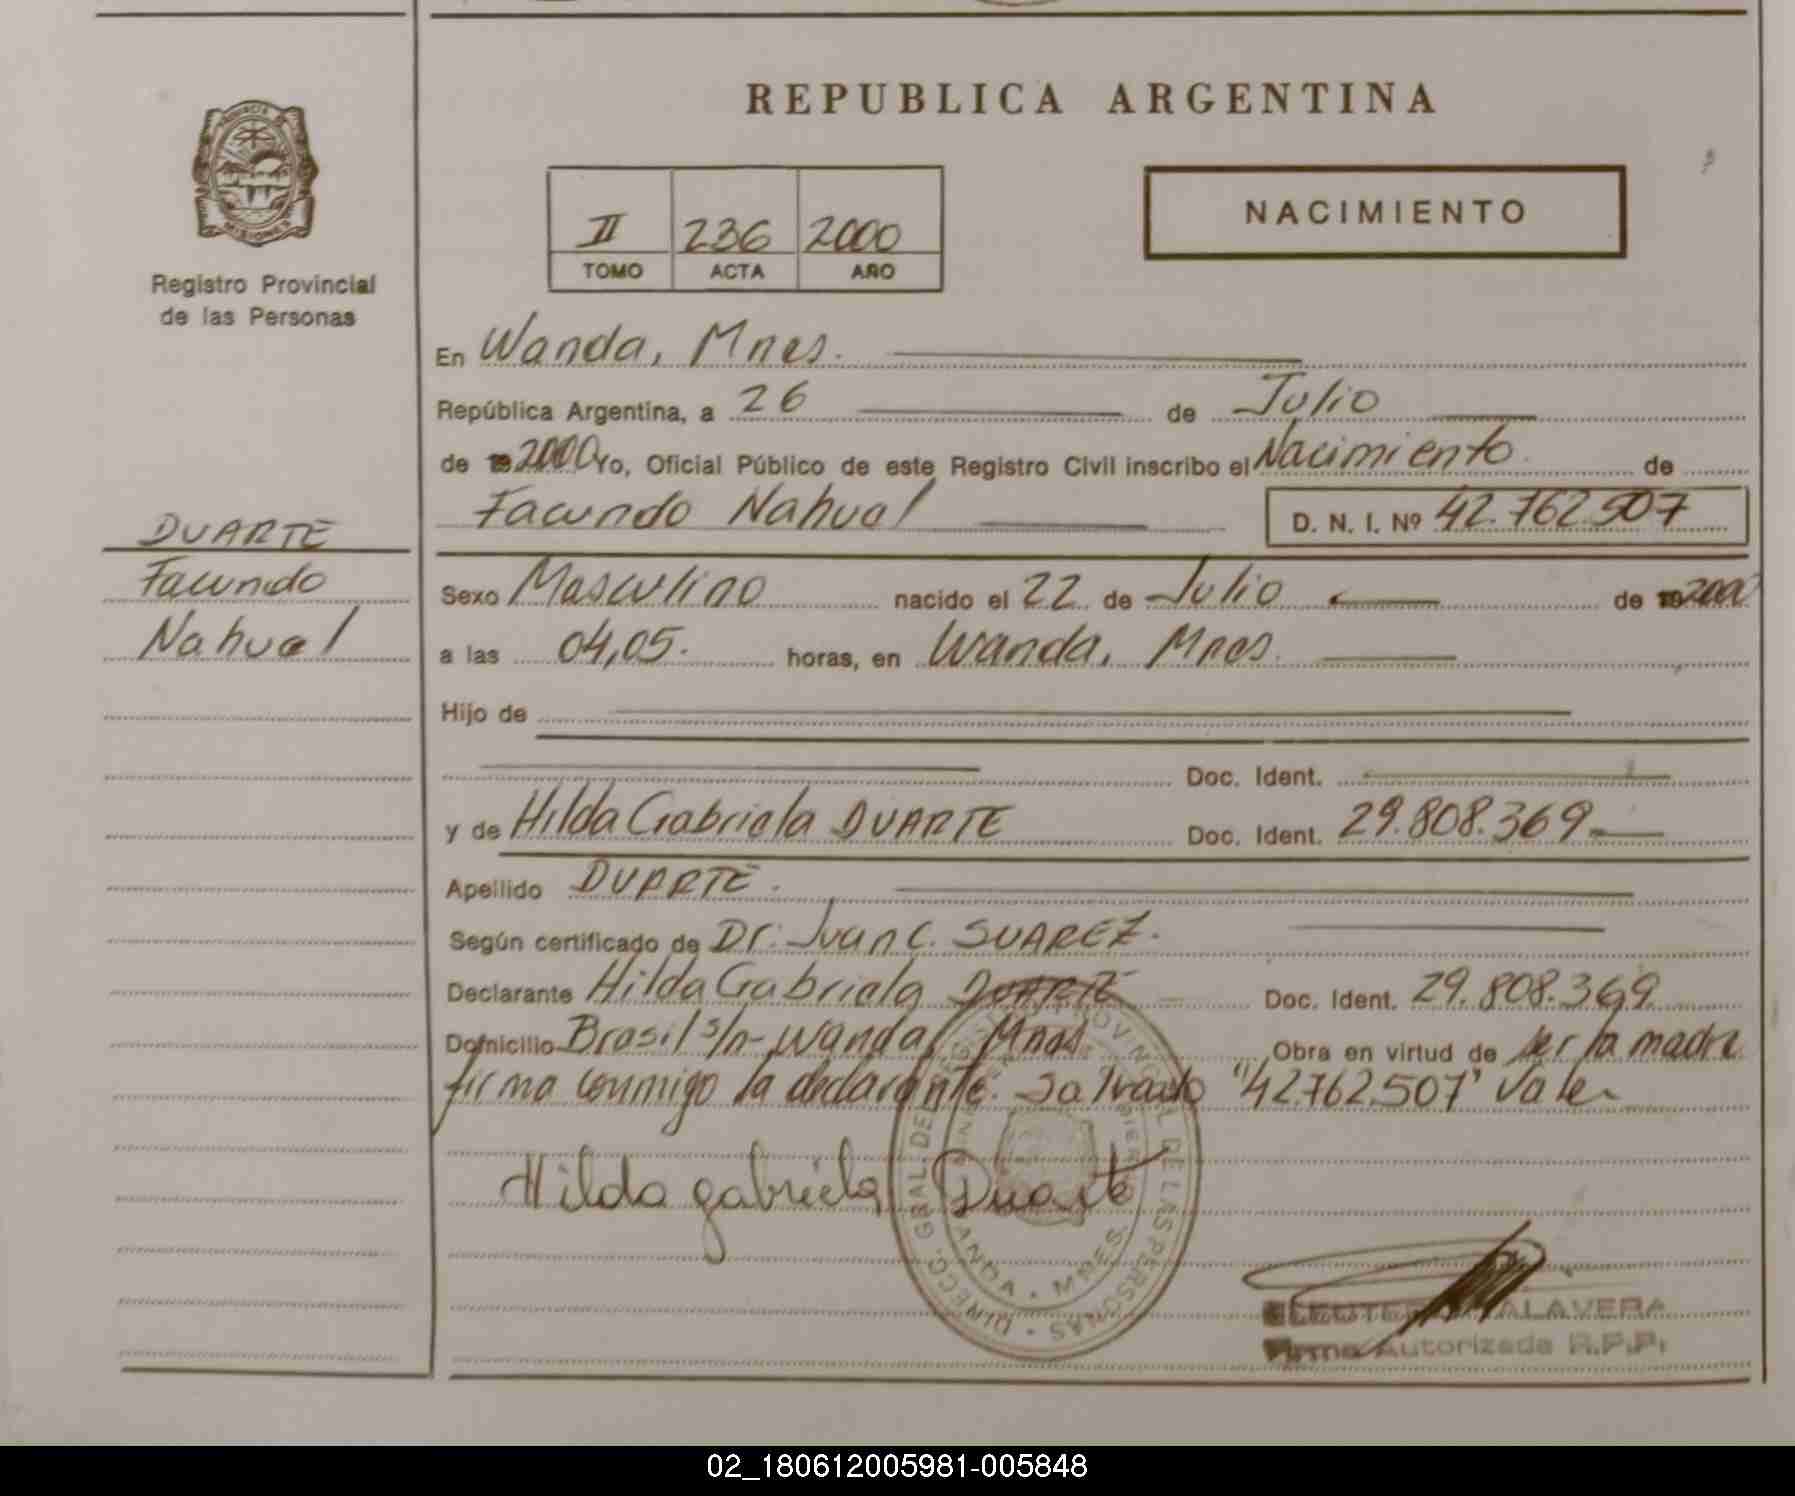 REPUBLICA ARGENTINA
PROVINCIA DE MISIONES
Registro Provincial
de las Personas
II 236 2000
TOMO ACTA AÑO
NACIMIENTO
En Wanda, Mnes.
República Argentina, a 26 de Julio
de 2000 Yo, Oficial Público de este Registro Civil inscribo el Nacimiento de
Facundo Nahuel D. N. I. Nº 42.762.507
DUARTE
Facundo
Nahuel
Sexo Masculino nacido el 22 de Julio de 2000
a las 04,05. horas, en Wanda, Mnes.
Hijo de
Doc. Ident.
y de Hilda Gabriela DUARTE Doc. Ident. 29.808.369
Apellido DUARTE.
Según certificado de Dr. Juan C. SUAREZ.
Declarante Hilda Gabriela DUARTE Doc. Ident. 29.808.369
Domicilio Brasil s/n - Wanda, Mnes. Obra en virtud de ser la madre
firma conmigo la declarante. Salvado "42.762.507" Vale
Hilda gabriela Duarte
GRAL. DE PROVINCIAL DE LAS PERSONAS • DIRECC.
WANDA • MNES.
ELEUTERIO TALAVERA
Firma Autorizada R.P.P.
02_180612005981-005848